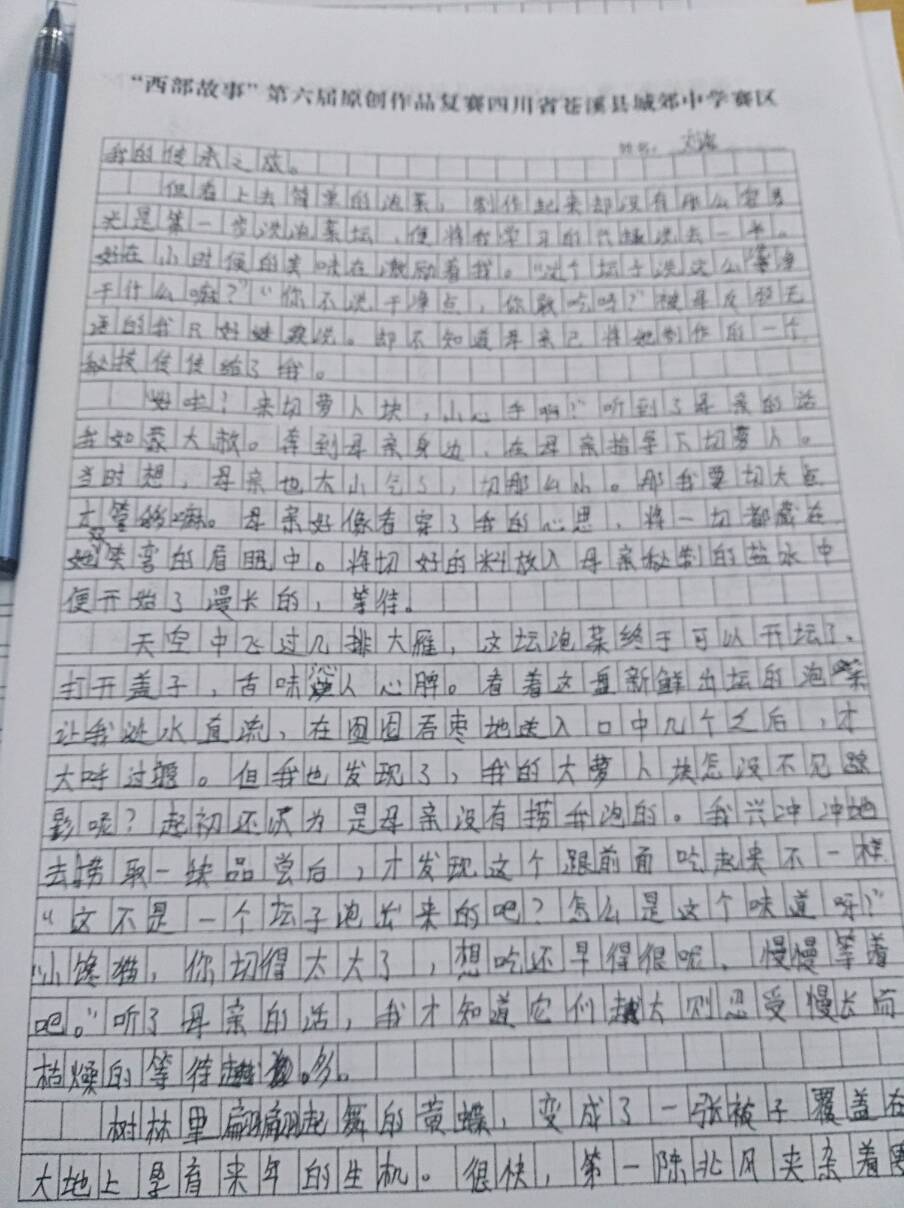 “西部故事”第六届原创作品复赛四川省苍溪县城郊中学赛区
姓名：
我的传承之旅。
但看上去简单的泡菜，制作起来却没有那么容易
光是第一步洗泡菜坛，便将我学习的兴趣洗去一半。
好在小时候的美味在激励着我。“这个坛子洗这么干净
干什么嘛？”“你不洗干净点，你敢吃吗？”被母亲反驳无
语的我只好继续洗。却不知道母亲已将她制作的一个
秘技传传给了我。
好啦！来切萝卜块，小心手啊！”听到了母亲的话
我如蒙大赦。奔到母亲身边，在母亲指导下切萝卜。
当时想，母亲也太小气了，切那么小。那我要切大点
才算够嘛。母亲好像看穿了我的心思，将一切都藏在
她笑弯的眉眼中。将切好的料放入母亲秘制的盐水中
便开始了漫长的，等待。
天空中飞过几排大雁，这坛泡菜终于可以开坛了，
打开盖子，古味沁人心脾。看着这盘新鲜出坛的泡菜
让我涎水直流，在囫囵吞枣地送入口中几个之后，才
大呼过瘾。但我也发现了，我的大萝卜块怎没不见踪
影呢？起初还以为是母亲没有捞我泡的。我兴冲冲地
去捞取一块品尝后，才发现这个跟前面吃起来不一样
“这不是一个坛子泡出来的吧？怎么是这个味道呀？”
“小馋猫，你切得太大了，想吃还早得很呢，慢慢等着
吧。”听了母亲的话，我才知道它们越大则忍受慢长而
枯燥的等待越多。
树林里翩翩起舞的黄蝶，变成了一张被子覆盖在
大地上孕育来年的生机。很快，第一阵北风夹杂着